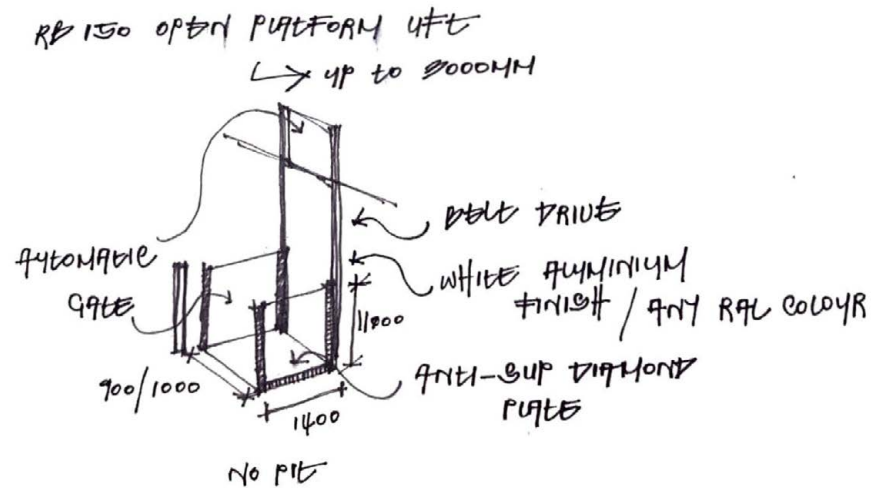 RB 150 OPEN PLATFORM LIFT
UP TO 3000MM
BELT DRIVE
AUTOMATIC
GATE
WHITE ALUMINIUM
FINISH / ANY RAL COLOUR
1100
900/1000
1400
ANTI-SLIP DIAMOND
PLATE
NO PIT